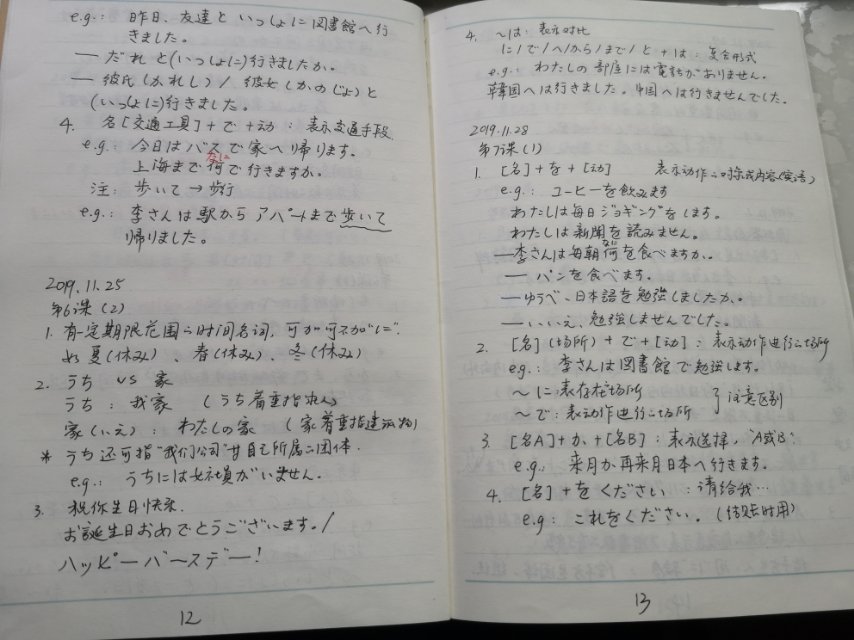 e.g.: 昨日、友達と いっしょに 図書館へ行
きました。
— だれ と(いっしょに)行きましたか。
— 彼氏(かれし) / 彼女(かのじょ)と
(いっしょに)行きました。
4. 名[交通工具]+で+动 : 表示交通手段
e.g.: 今日は バスで 家へ 帰ります。
なに
上海まで 何で行きますか。
注: 歩いて → 步行
e.g.: 李さんは 駅から アパートまで 歩いて
帰りました。
2019.11.25
第6课 (2)
1. 有一定期限范围的时间名词, 可加可不加"に"
如 夏(休み)、春(休み)、冬(休み)
2. うち VS 家
うち : 我家 (うち着重指家人)
家(いえ) : わたしの家 (家着重指建筑物)
* うち还可指"我们公司"等自己所属的团体.
e.g.: うちには女社員がいません.
3. 祝你生日快乐.
お誕生日おめでとうございます。/
ハッピーバースデー!
12
4. ~は: 表示对比
に/で/へ/から/まで/と+は: 复合形式
e.g.: わたしの 部屋には電話がありません。
韓国へは行きました。中国へは行きませんでした。
2019.11.28
第7课 (1)
1. [名]+を+[动] 表示动作的对象或内容(宾语)
e.g.: コーヒーを飲みます
わたしは毎日ジョギングをします。
わたしは新聞を読みません。
なに
— 李さんは毎朝何を食べますか。
— パンを食べます。
— ゆうべ、日本語を勉強しましたか。
— いいえ、勉強しませんでした。
2. [名](場所)+で+[动] : 表示动作进行的场所
e.g.: 李さんは図書館で勉強します。
~に: 表存在场所
~で: 表动作进行的场所 } 注意区别
3. [名A]+か+[名B] : 表示选择, "A或B".
e.g.: 来月か再来月日本へ行きます。
4. [名]+をください : 请给我…
e.g: これをください。(结账时用)
13